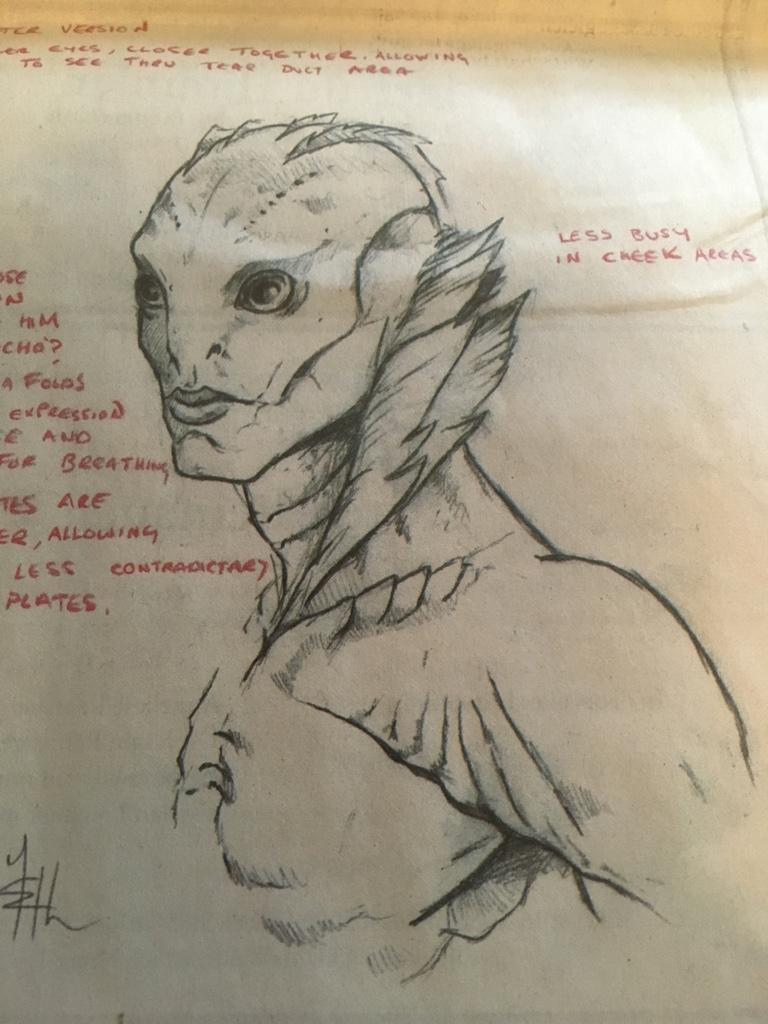 VERSION
EYES, CLOSER TOGETHER. ALLOWING
TO SEE THRU TEAR DUCT AREA
LESS BUSY
IN CHEEK AREAS
HIM
FOLDS
EXPRESSION
AND
FOR BREATHING
ARE
ALLOWING
LESS CONTRADICTARY
PLATES.